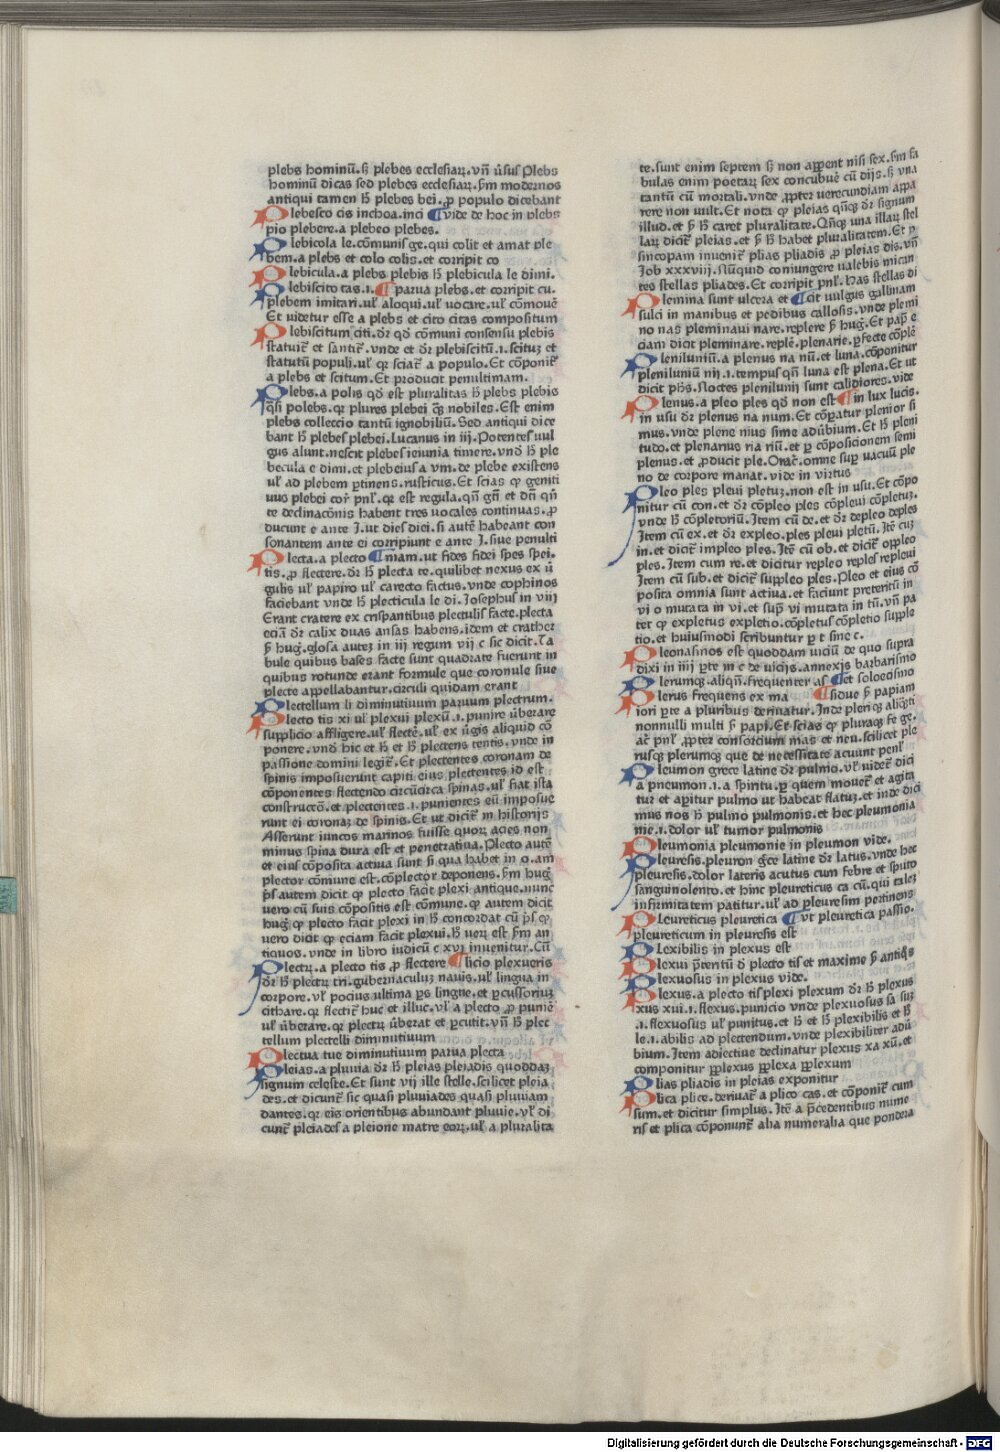 plebs hominū. ꝫ plebes ecclesiaꝝ. vn̄ v̓sus Plebs
hominū dicas sed plebes ecclesiaꝝ. ẜm modernos
antiqui tamen ħ plebes bei. ꝓ populo dicebant
Plebesco cis inchoa. inci ¶ vide de hoc in plebs
pio plebere. a plebeo plebes.
Plebicola le. cōmunis ge. qui colit et amat ple
bem. a plebs et colo colis. et corripit co
Plebicula. a plebs plebis ħ plebicula le dimi.
Plebiscito tas. i. ¶ parua plebs. et corripit cu.
plebem imitari. uł aloqui. uł uocare. uł cōmouē
Et videtur esse a plebs et cito citas compositum
Plebiscitum citi. dr̄ qd̄ cōmuni consensu plebis
statuit̄ et sancit̄. vnde et dr̄ plebiscitū. i. scituꝫ et
statutū populi. uł qꝛ sciat̄ a populo. Et cōponit̄
a plebs et scitum. Et producit penultimam.
Plebs. a polis qd̄ est pluralitas ħ plebs plebis
q̄si polebs. qꝛ plures plebei q̄ꝫ nobiles. Est enim
plebs colleccio tantū ignobiliū. Sed antiqui dice
bant ħ plebes plebei. Lucanus in iij. Potentes uul
gus alunt. nescit plebes ieiunia timere. vnd̄ ħ ple
becula e dimi. et plebeius a vm. de plebe existens
uł ad plebem ꝑtinens. rusticus. Et scias ꝙ geniti
uus plebei cor̄ pnł. qꝛ est regula. qn̄ gn̄t et dn̄t qn̄
te declinacōnis habent tres uocales continuas. ꝓ
ducunt e ante i. ut dies diei. si autē habeant con
sonantem ante ei corripiunt e ante i. siue penulti
Plecta. a plecto ¶ mam. ut fides fidei spes spei.
tis. ꝓ flectere. dr̄ ħ plecta te. quilibet nexus ex ū
gulis uł papiro uł carecto factus. vnde cophinos
faciebant vnde ħ plecticula le di. Josephus in viij
Erant cratere ex crispantibus plectulis facte. plecta
eciā dr̄ calix duas ansas habens. idem et crather
ẜm hug. glosa autez in iij regum vij c sic dicit. Ta
bule quibus bases facte sunt quadrate fuerunt in
quibus rotunde erant formule que coronule siue
plecte appellabantur. circuli quidam erant
Plectellum li diminutiuum paruum plectrum.
Plecto tis xi uł plexui plexū. i. punire ūberare
supplicio affligere. uł flectē. uł ex ūgis aliquid cō
ponere. vnd̄ hic et ħ et ħ plectens tentis. vnde in
passione domini legit̄. Et plectentes coronam de
spinis imposuerunt capiti eius plectentes id est
cōponentes flectendo circūcirca spinas. uł fiat ista
construccō. et plectentes. i. punientes eū imposue
runt ei coronaꝫ de spinis. Et ut dicit̄ in historijs
Asserunt iuncos marinos fuisse quoꝝ acies non
minus spina dura est et penetratiua. Plecto autē
et eius cōposita actiua sunt si qua habet in o. am
plector cōmune est. cōplector deponens. ẜm hug
p̄s autem dicit ꝙ plecto facit plexi antique. nunc
vero cū suis cōpositis est cōmune. ꝙ autem dicit
hug ꝙ plecto facit plexi in ħ concordat cū p̄s ꝙ
vero dicit ꝙ eciam facit plexui. ħ ueꝝ est ẜm an
tiquos. vnde in libro iudicū c xvi inuenitur. Cū
Plectꝝ. a plecto tis ꝓ flectere ¶ licio plexueris
dr̄ ħ plectꝝ tri. gubernaculuꝫ nauis. uł lingua in
corpore. vł pocius ultima ꝑs lingue. et ꝑcussoriuꝫ
cithare. qꝛ flectit̄ huc et illuc. vł a plecto ꝓ punie
uł ūberare. qꝛ plectꝝ ūberat et ꝑcutit. vn̄ ħ plec
tellum plectelli diminutiuum
Plectua tue diminutiuum parua plecta
Pleias. a pluuia dr̄ ħ pleias pleiadis quoddaꝫ
signum celeste. Et sunt vij ille stelle. scilicet pleia
des. et dicunt̄ sic quasi pluuiades quasi pluuiam
dantes. qꝛ eis orientibus abundant pluuie. vł di
cunt̄ pleiades a pleione matre eoꝝ. uł a pluralita
te. sunt enim septem ꝫ non apparent nisi sex. ẜm fa
bulas enim poetaꝝ sex concubuē cū dijs. ꝫ vna
tantū cū mortali. vnde ꝓpter uerecundiam appa
rere non uult. Et nota ꝙ pleias qn̄qꝫ dr̄ signum
illud. et ẜm ħ caret pluralitate. Qn̄qꝫ una illaꝝ stel
laꝝ dicit̄ pleias. et ẜm ħ habet pluralitatem. Et ꝑ
sincopam inuenit̄ plias pliadis ꝓ pleias dis. vn̄
Job xxxviij. Nūquid coniungere ualebis mican
tes stellas pliades. Et corripit pnł. Has stellas di
Plemina sunt ulcera et ¶ cit uulgus gallinam
sulci in manibus et pedibus callosis. vnde plemi
no nas pleminaui nare. replere ẜm hug. Et pap̄ e
ciam dicit pleminare. replē. plenarie. ꝑfecte cōplē
Pleniluniū. a plenus na nū. et luna. cōponitur
pleniluniū nij. i. tempus qn̄ luna est plena. Et ut
dicit ph̄s. Noctes plenilunij sunt calidiores. vide
Plenus. a pleo ples qd̄ non est ¶ in lux lucis.
in usu dr̄ plenus na num. Et cōꝑatur plenior si
mus. vnde plene nius sime adūbium. Et ħ pleni
tudo. et plenarius ria riū. et ꝑ cōposicionem semi
plenus. et ꝓducit ple. Orac̄. omne sup̄ uacuū ple
no de corpore manat. vide in virtus
Pleo ples pleui pletuꝫ. non est in usu. Et cōpo
nitur cū con. et dr̄ cōpleo ples cōpleui cōpletuꝫ.
vnde ħ cōpletoriū. Item cū de. et dr̄ depleo deples
Item cū ex. et dr̄ expleo. ples pleui pletū. Itē cuꝫ
in. et dicit̄ impleo ples. Itē cū ob. et dicit̄ oppleo
ples. Item cum re. et dicitur repleo reples repleui
Item cū sub. et dicit̄ suppleo ples. Pleo et eius cō
posita omnia sunt actiua. et faciunt preteritū in
vi o mutata in vi. et sup̄ vi mutata in tū. vn̄ pa
tet ꝙ expletus expletio. cōpletus cōpletio supple
tio. et huiusmodi scribuntur ꝑ t sine c.
Pleonasmos est quoddam uiciū de quo supra
dixi in iiij ꝑte in c de vicijs. annexis barbarismo
Plerumqꝫ. aliqn̄. frequenter as ¶ et soloecismo
Plerus frequens ex ma ¶ sidue ẜm papiam
iori ꝑte a pluribus deriuatur. Inde pleriqꝫ aliq̄sti
nonnulli multi ẜm papi. Et scias ꝙ pluraqꝫ fe ge.
ac̄t pnł ꝓpter consorcium mas et neu. scilicet ple
rusqꝫ plerumqꝫ que de necessitate acuunt penł
Pleumon grece latine dr̄ pulmo. vł videt̄ dici
a pneumon. i. a spiritu. ꝑ quem mouet̄ et agita
tur et aꝑitur pulmo ut habeat flatuꝫ. et inde dici
mus nos ħ pulmo pulmonis. et hec pleumonia
nie. i. dolor uł tumor pulmonis
Pleumonia pleumonie in pleumon vide.
Pleuresis. pleuron grece latine dr̄ latus. vnde hec
pleuresis. dolor lateris acutus cum febre et sputo
sanguinolento. et hinc pleureticus ca cū. qui taleꝫ
infirmitatem patitur. uł ad pleuresim pertinens
Pleureticus pleuretica ¶ vt pleuretica passio.
pleureticum in pleuresis est
Plexibilis in plexus est
Plexui p̄teritū d̄ plecto tis et maxime ẜm antiq̄s
Plexuosus in plexus vide.
Plexus. a plecto tis plexi plexum dr̄ ħ plexus
xus xui. i. flexus. punicio vnde plexuosus sa suꝫ
.i. flexuosus uł punitus. et ħ et ħ plexibilis et ħ
le. i. abilis ad plectendum. vnde plexibiliter adū
bium. Item adiectiue declinatur plexus xa xū. et
componitur ꝑplexus ꝑplexa ꝑplexum
Plias pliadis in pleias exponitur
Plica plice. deriuat̄ a plico cas. et cōponit̄ cum
sum. et dicitur simplus. Itē a p̄cedentibus nume
ris et plica cōponunt̄ alia numeralia que pondera
Digitalisierung gefördert durch die Deutsche Forschungsgemeinschaft - DFG